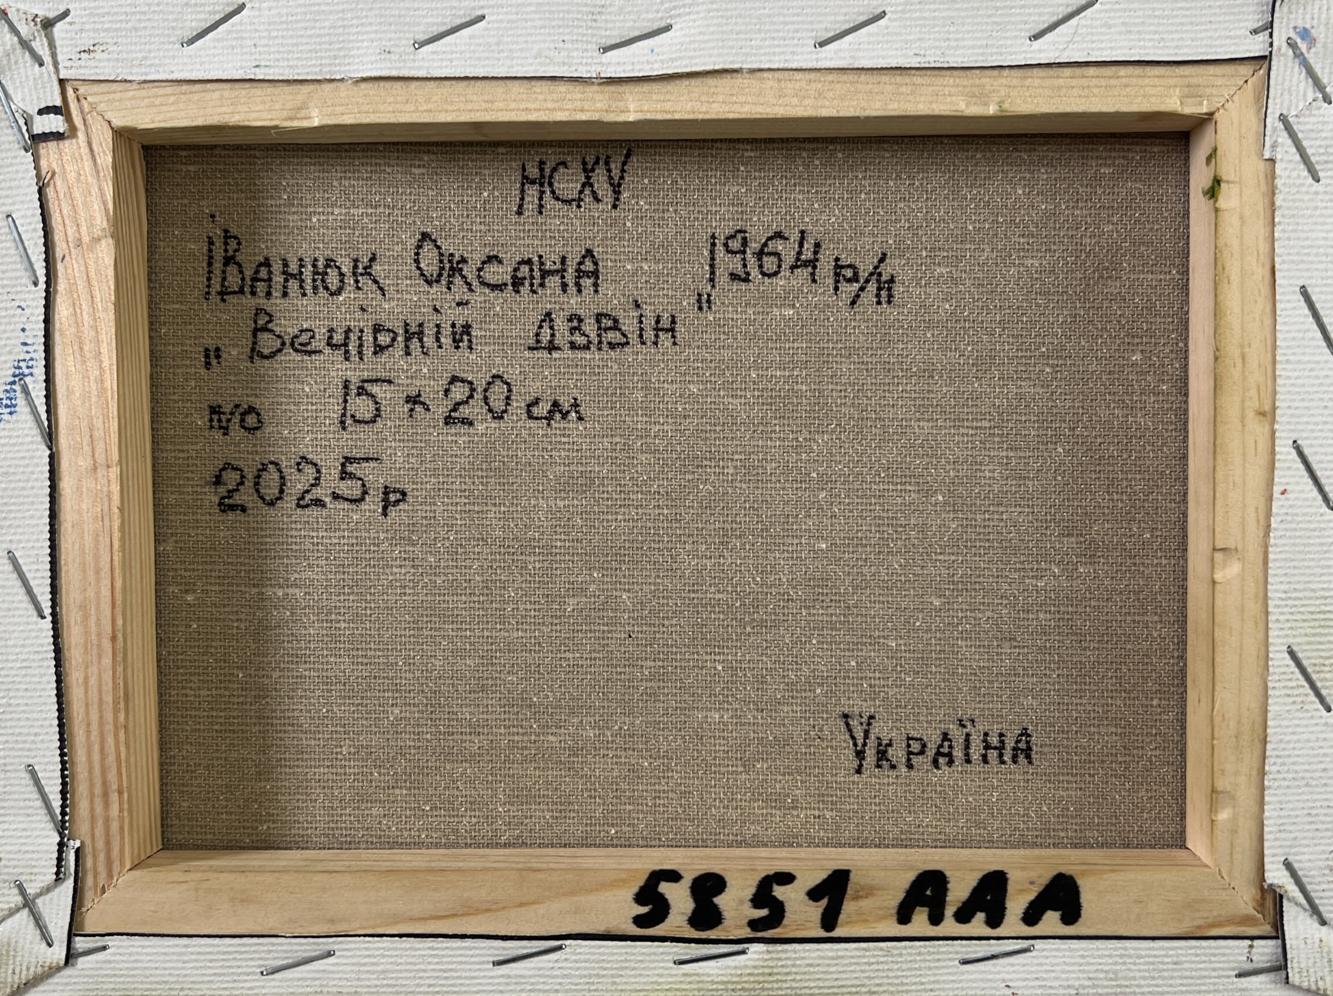 НСХУ
Іванюк Оксана 1964 р/н
„Вечірній дзвін"
п/о 15 × 20 см
2025р
Україна
5851 AAA